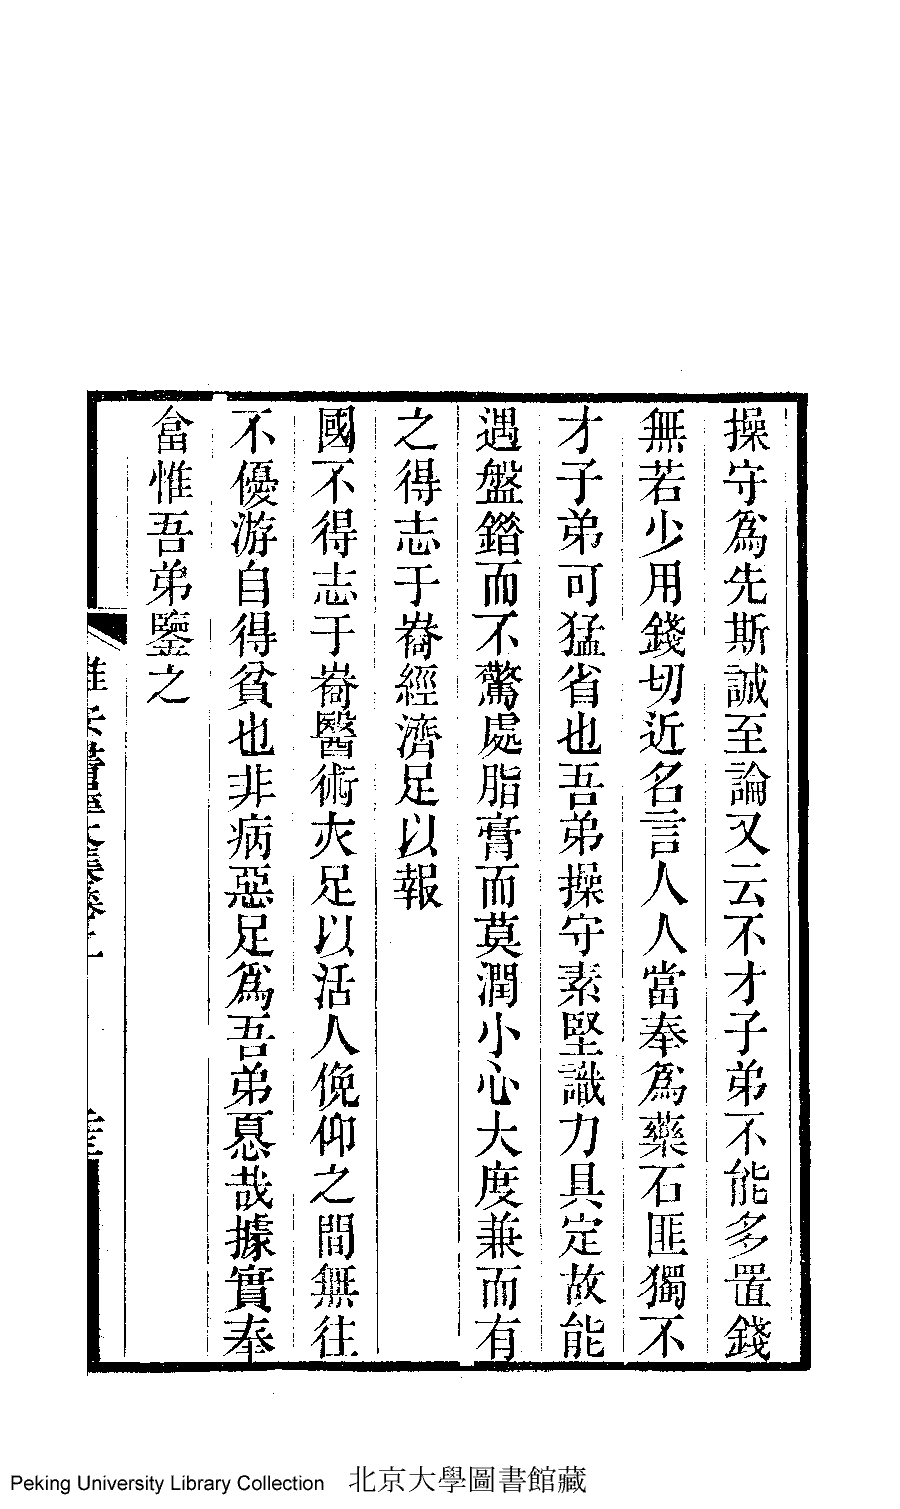 操守爲先斯誠至論又云不才子弟不能多置錢
無若少用錢切近名言人人當奉爲藥石匪獨不
才子弟可猛省也吾弟操守素堅識力具定故能
遇盤錯而不驚處脂膏而莫潤小心大度兼而有
之得志于旹經濟足以報
國不得志于旹醫術亦足以活人俛仰之間無往
不優游自得貧也非病惡足爲吾弟惪哉據實奉
畣惟吾弟鑒之
Peking University Library Collection 北京大學圖書館藏